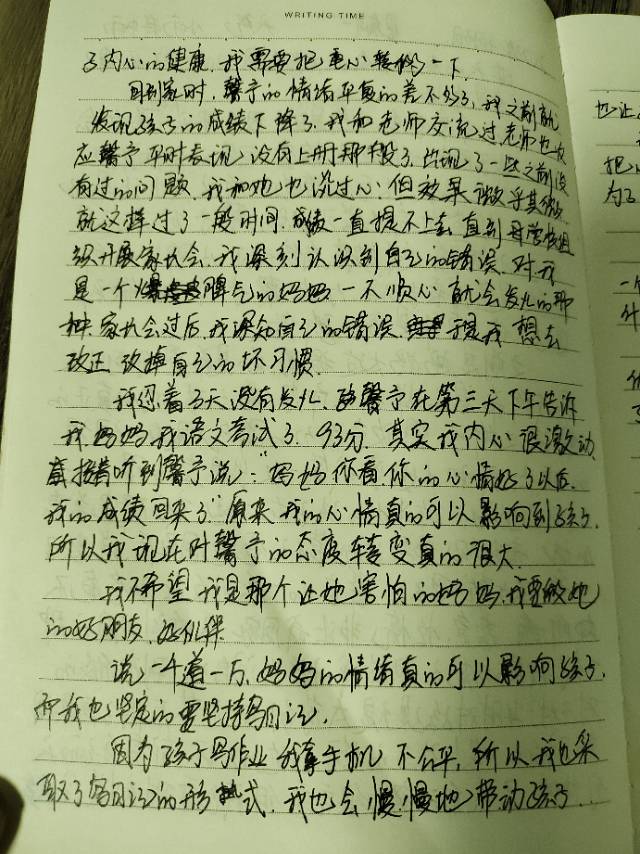 WRITING TIME
了内心的健康.我需要把重心转移一下
回到家时.馨予的情绪平复的差不多了,我之前就
发现孩子的成绩下降了.我和老师交流过老师也反
应馨予平时表现没有上册那段了.出现了一些之前没
有过的问题.我和她也说过心.但效果微乎其微.
就这样过了一段时间.成绩一直提不上去直到学校组
织开展家长会.我深刻认识到自己的错误.对我
是一个脾气的妈妈一不顺心就会发火的那
种.家长会过后.我深知自己的错误.于是我想去
改正改掉自己的坏习惯.
我忍着3天没有发火.馨予在第三天下午告诉
我妈妈我语文考试了.93分.其实我内心很激动.
直接听到馨予说:"妈妈你看你的心情好了以后.
我的成绩回来了"原来我的心情真的可以影响到孩子.
所以我现在对馨予的态度转变真的很大.
我不希望我是那个让她害怕的妈妈.我要做她
的好朋友.好伙伴
说一千道一万.妈妈的情绪真的可以影响孩子.
而我也坚定的要坚持写日记.
因为孩子写作业我拿手机不公平,所以我也采
取了写日记的形式.我也会慢慢地带动孩子...
也让
把
为了
一个
什